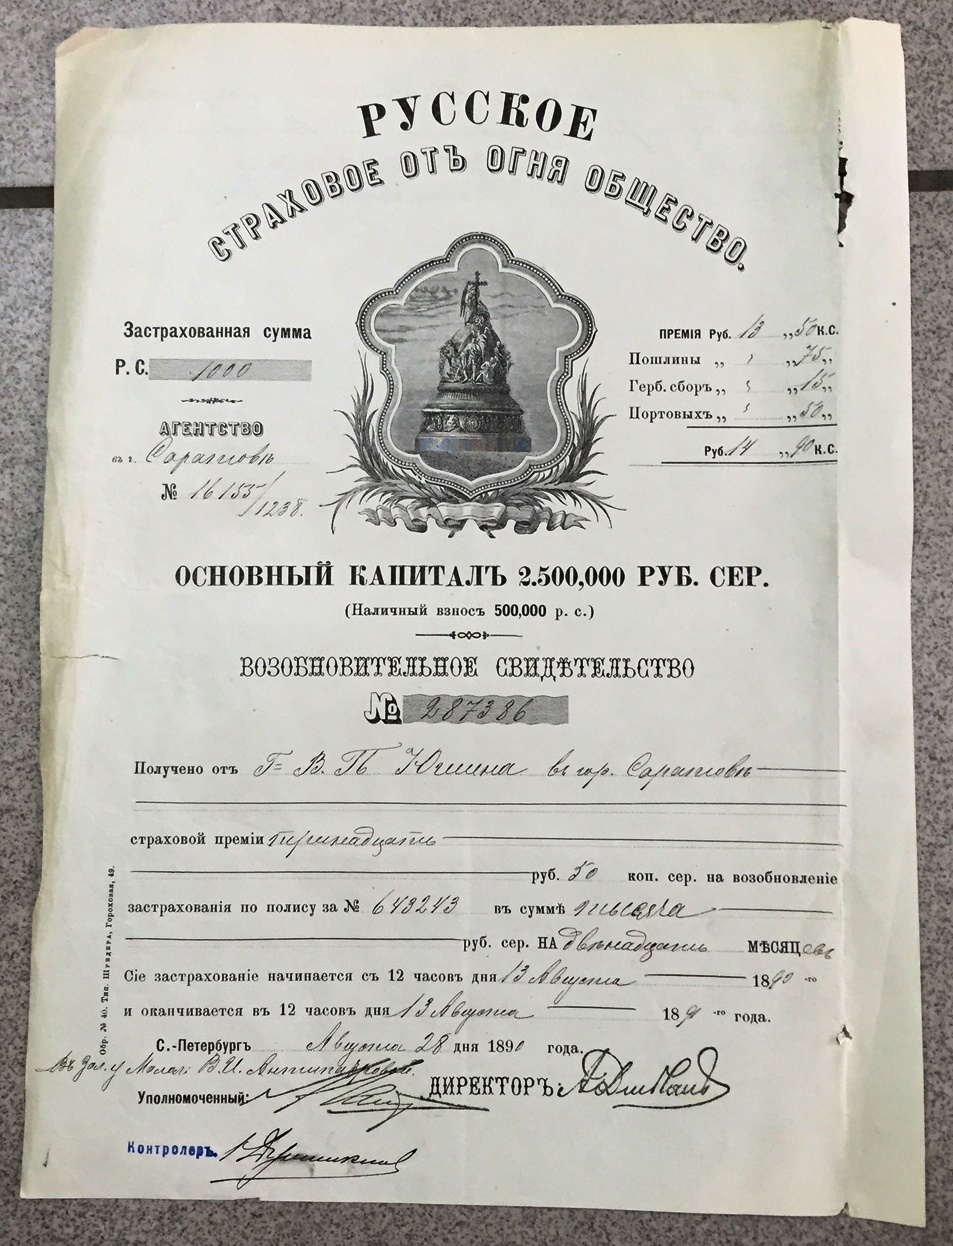 РУССКОЕ
СТРАХОВОЕ ОТЪ ОГНЯ ОБЩЕСТВО.
Застрахованная сумма
Р. С. 1000
АГЕНТСТВО
въ г. Саратовѣ
№ 16155/1238.
ПРЕМІЯ Руб. 13 „ 50 К.С.
Пошлины „ „ 75 „
Герб. сборъ „ „ 15 „
Портовыхъ „ „ 50 „
Руб. 14 „ 90 К.С.
ОСНОВНЫЙ КАПИТАЛЪ 2.500,000 РУБ. СЕР.
(Наличный взносъ 500,000 р. с.)
ВОЗОБНОВИТЕЛЬНОЕ СВИДѢТЕЛЬСТВО
№ 287386
Получено отъ Г= В. П. Юшина въ гор. Саратовѣ
страховой преміи тринадцать
руб. 50 коп. сер. на возобновленіе
застрахованія по полису за № 643243 въ суммѣ тысяча
руб. сер. НА двѣнадцать МѢСЯЦевъ
Сіе застрахованіе начинается съ 12 часовъ дня 13 Августа 1890 -го
и оканчивается въ 12 часовъ дня 13 Августа 1891 -го года.
С.-Петербургъ Августа 28 дня 1890 года.
Въ зал. у В. И.
Уполномоченный: ДИРЕКТОРЪ:
Контролеръ.
Обр. № 40. Тип. Шредера, Гороховая, 49.